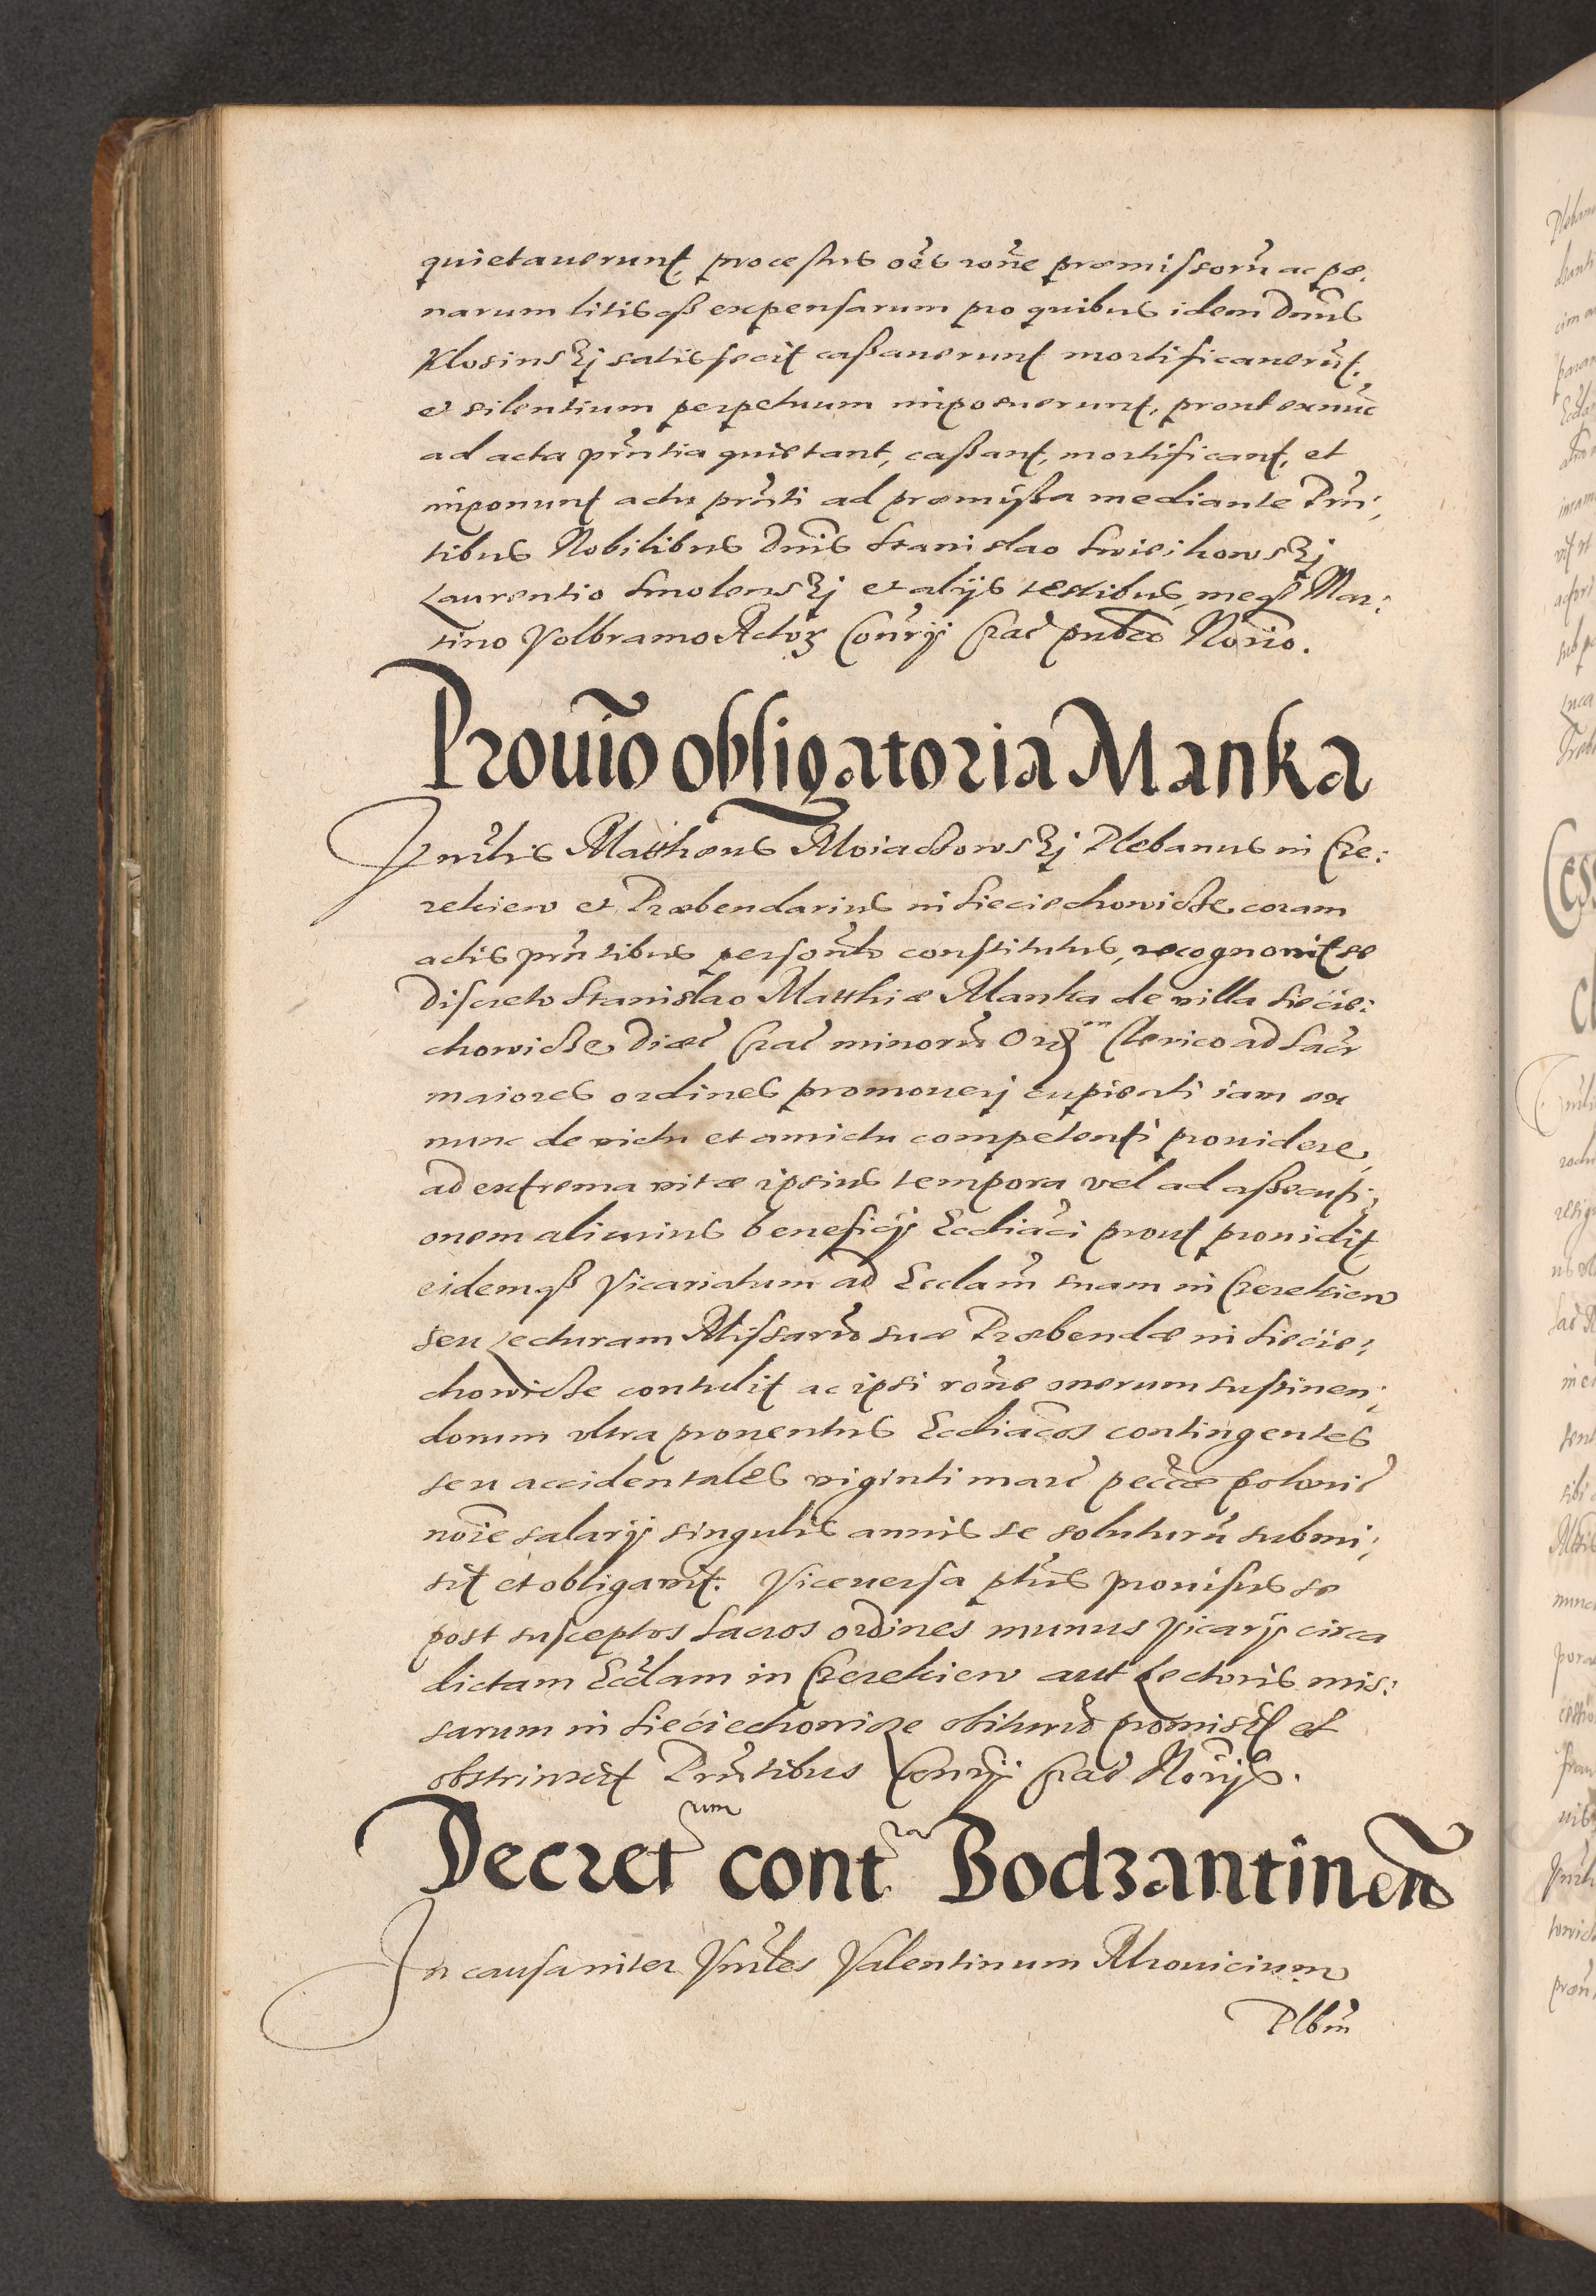 quietauerunt, processus oẽs rõne præmissorũ ac pæ,
narum litisqß expensarum pro quibus idem Dñus
Klosinskj satisfecit cassauerunt mortificauerũt.
et silentium perpetuum imposuerunt, prout exnũc
ad acta pñtia quietant, cassant, mortificant, et
imponunt actu pñti ad præmissa mediante Pñ,
tibus Nobilibus Dñis Stanislao
Laurentio Smolenskj et alijs testibus, meqß Mar:
tino Volbramo Actorʒ Conr̃ij Crac̃ publ̃co Nor̃io.
Prouiõ obligatoria Manka
Matthæus Plebanus in Cze:
rekiew et Præbendarius in Sieciechowicze coram
actis pñtibus personl̃r constitutus, recognouit se
Discreto Stanislao Matthiæ Manka de villa Siecie:
chowicze Diæc̃ Crac̃ minorũ Ord Clerico ad Sacr̃
maiores ordines promouerj cupienti iam ex
nunc de victu et amictu competenti prouidere,
ad extrema vitæ ipsius tempora vel ad assecuti,
onem alicuius beneficij Eccl̃iaci prout prouidit
eidemqß Vicariatum ad Eccl̃am suam in Czerekiew
seu Lecturam Missarũ suæ Præbendæ in Siecie:
chowicze contulit ac ipsi rõne onerum sustinen,
dorum vltra prouentus Eccl̃iac̃os contingentes
seu accidentales viginti marc̃ pec̃cæ polonic̃
noĩe salarij singulis annis se soluturũ submi,
sit et obligauit. Viceuersa p̃tus prouisus se
post susceptos Sacros ordines munus Vicarij circa
dictam Eccl̃am in Czerekiew aut Lectoris mis:
sarum in Sieciechowicze obiturũ promisit et
obstrinxit Pñtibus Conr̃ij Crac̃ Nor̃ijs.
Decretum contra Bodzantinen̄
In causa inter Vñbles Valentinum
Plbm̃